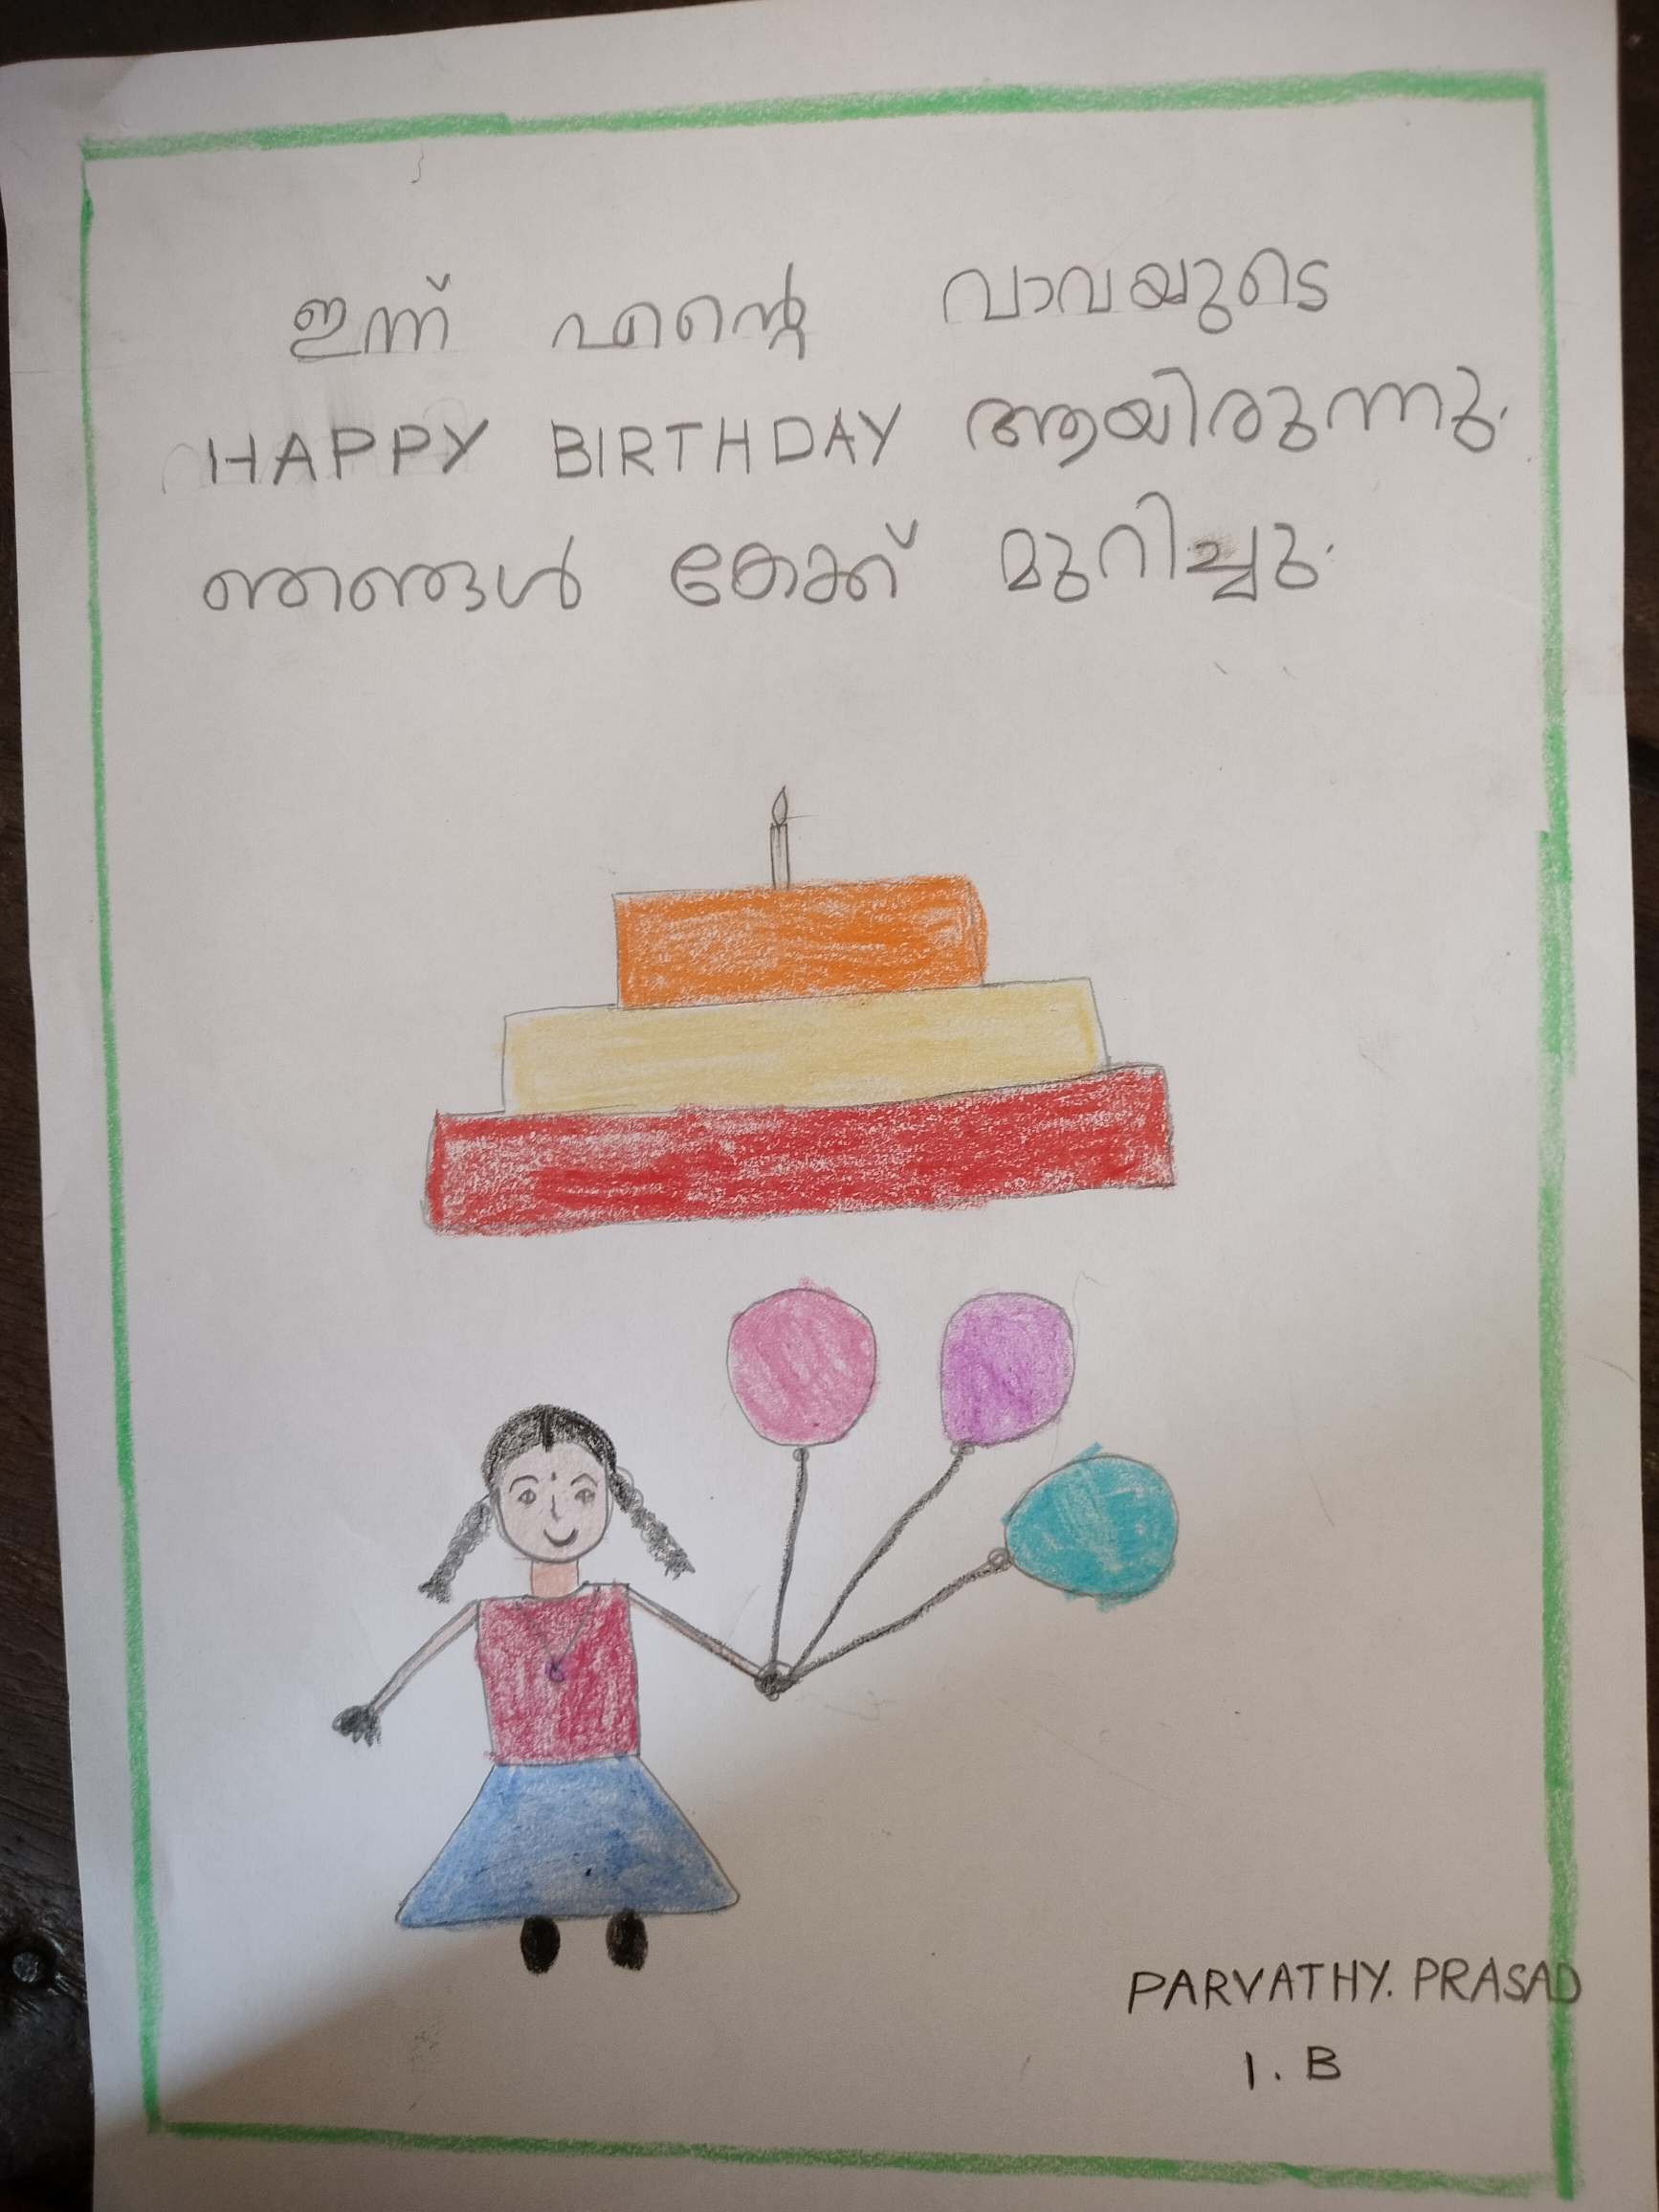 ഇന്ന് എന്റെ വാവയുടെ
HAPPY BIRTHDAY ആയിരുന്നു.
ഞങ്ങൾ കേക്ക് മുറിച്ചു.
PARVATHY. PRASAD
1. B